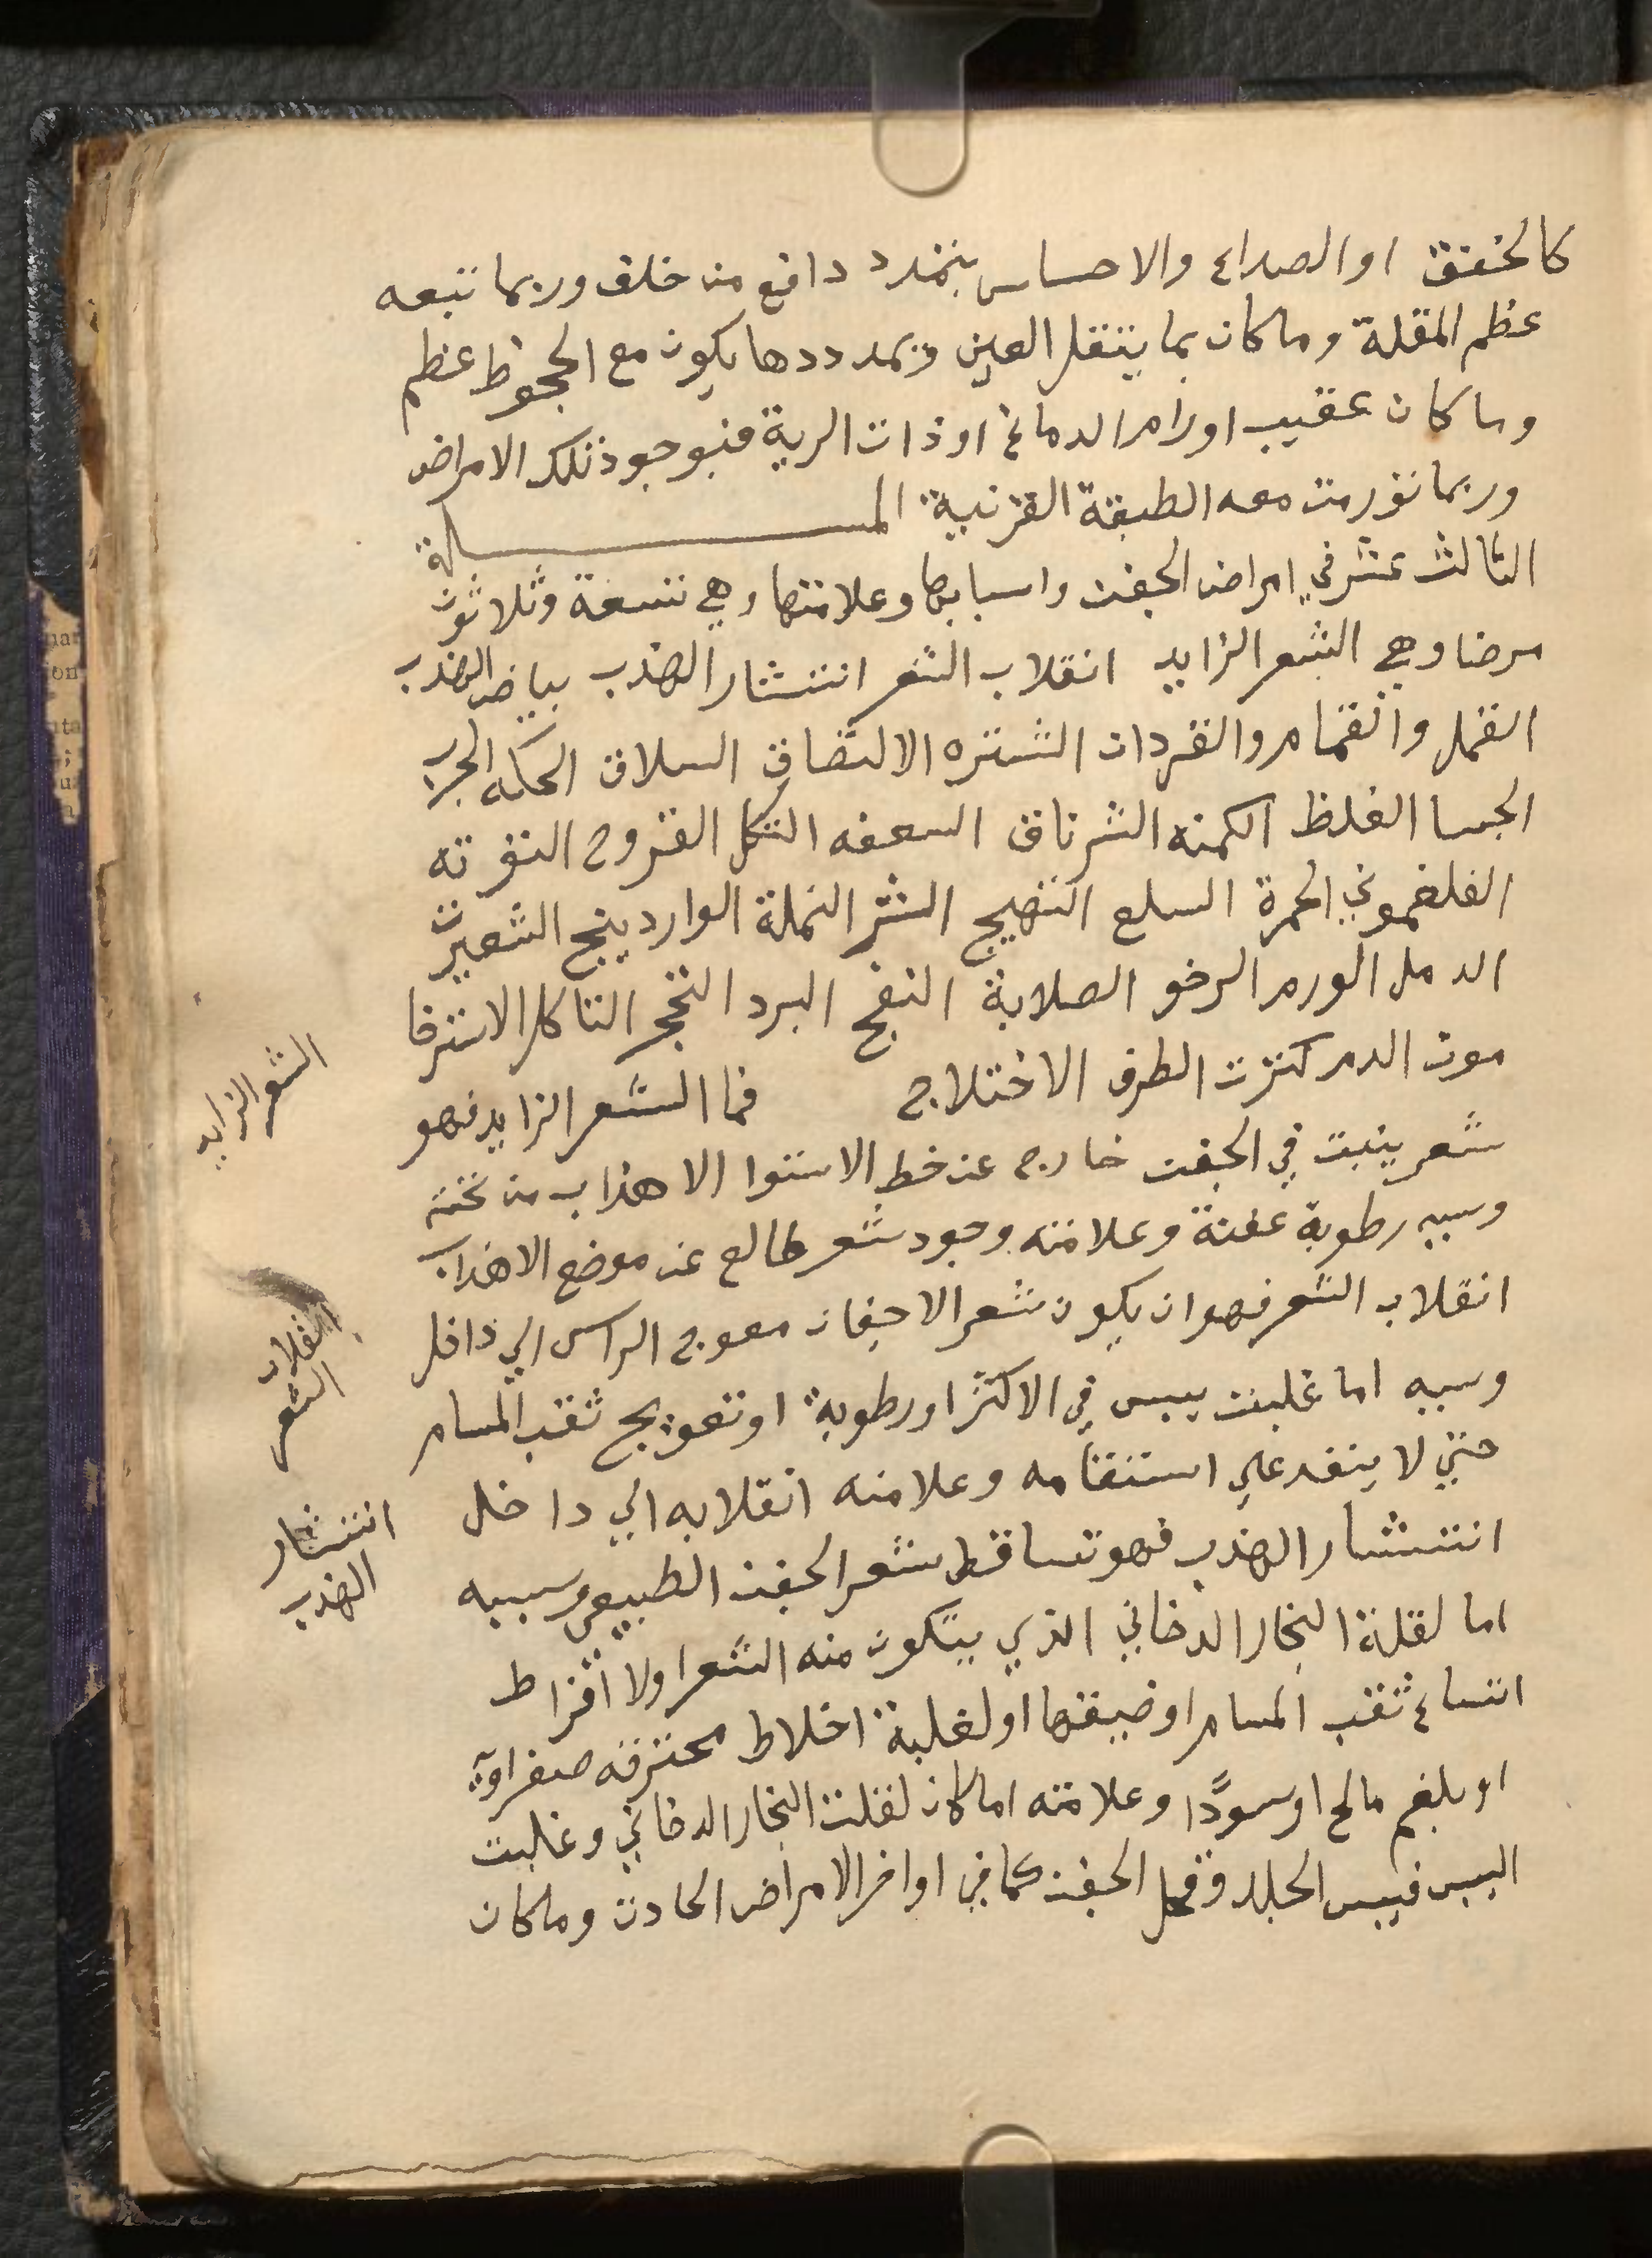 كالخنق او الصداع والاحساس بتمدد دافع من خلف وربما تبعه
عظم المقلة وما كان بما يثقل العين ويمددها يكون مع الجحوظ عظم
وما كان عقيب اورام الدماغ او ذات الرية فبوجود تلك الامراض
وربما تورمت معه الطبقة القرنية المسالة
الثالث عشر في امراض الجفن واسبابها وعلامتها وهي تسعة وثلاثون
مرضا وهي الشعر الزايد انقلاب الشعر انتشار الهدب بياض الهدب
القمل والقمقام والقردان الشتره الالتصاق السلاق الحكه الجرب
الجسا الغلظ الكمنه الشرناق السعفه التكل القروح التوته
الفلغموني الحمرة السلع التهيج الشرا النملة الواردينج الشعيرت
الدمل الورم الرخو الصلابة النفخ البرد التحجر التاكل الاسترخا
موت الدم كثرت الطرف الاختلاج فما الشعر الزايد فهو
شعر ينبت في الجفن خارج عن خط الاستوا الاهداب من تحته
وسببه رطوبة عفنة وعلامته وجود شعر طالع عن موضع الاهداب
انقلاب الشعر فهو ان يكون شعر الاجفان معوج الراس الي داخل
وسببه اما غلبت يبس في الاكثر او رطوبة او تعويج ثقب المسام
حتي لا ينفد علي استقامه وعلامته انقلابه الي داخل
انتشار الهدب فهو تساقط شعر الجفن الطبيعي وسببه
اما لقلة البخار الدخاني الذي يتكون منه الشعر اولا افراط
اتساع ثقب المسام او ضيقها او لغلبة اخلاط محترقه صفراوية
او بلغم مالح او سودا وعلامته اما كان لقلت البخار الدخاني وغلبت
اليبس فيبس الجلد وقحل الجفن كما في اواخر الامراض الحادت وما كان
الشعر الزايد
انقلاب
الشعر
انتشار
الهدب